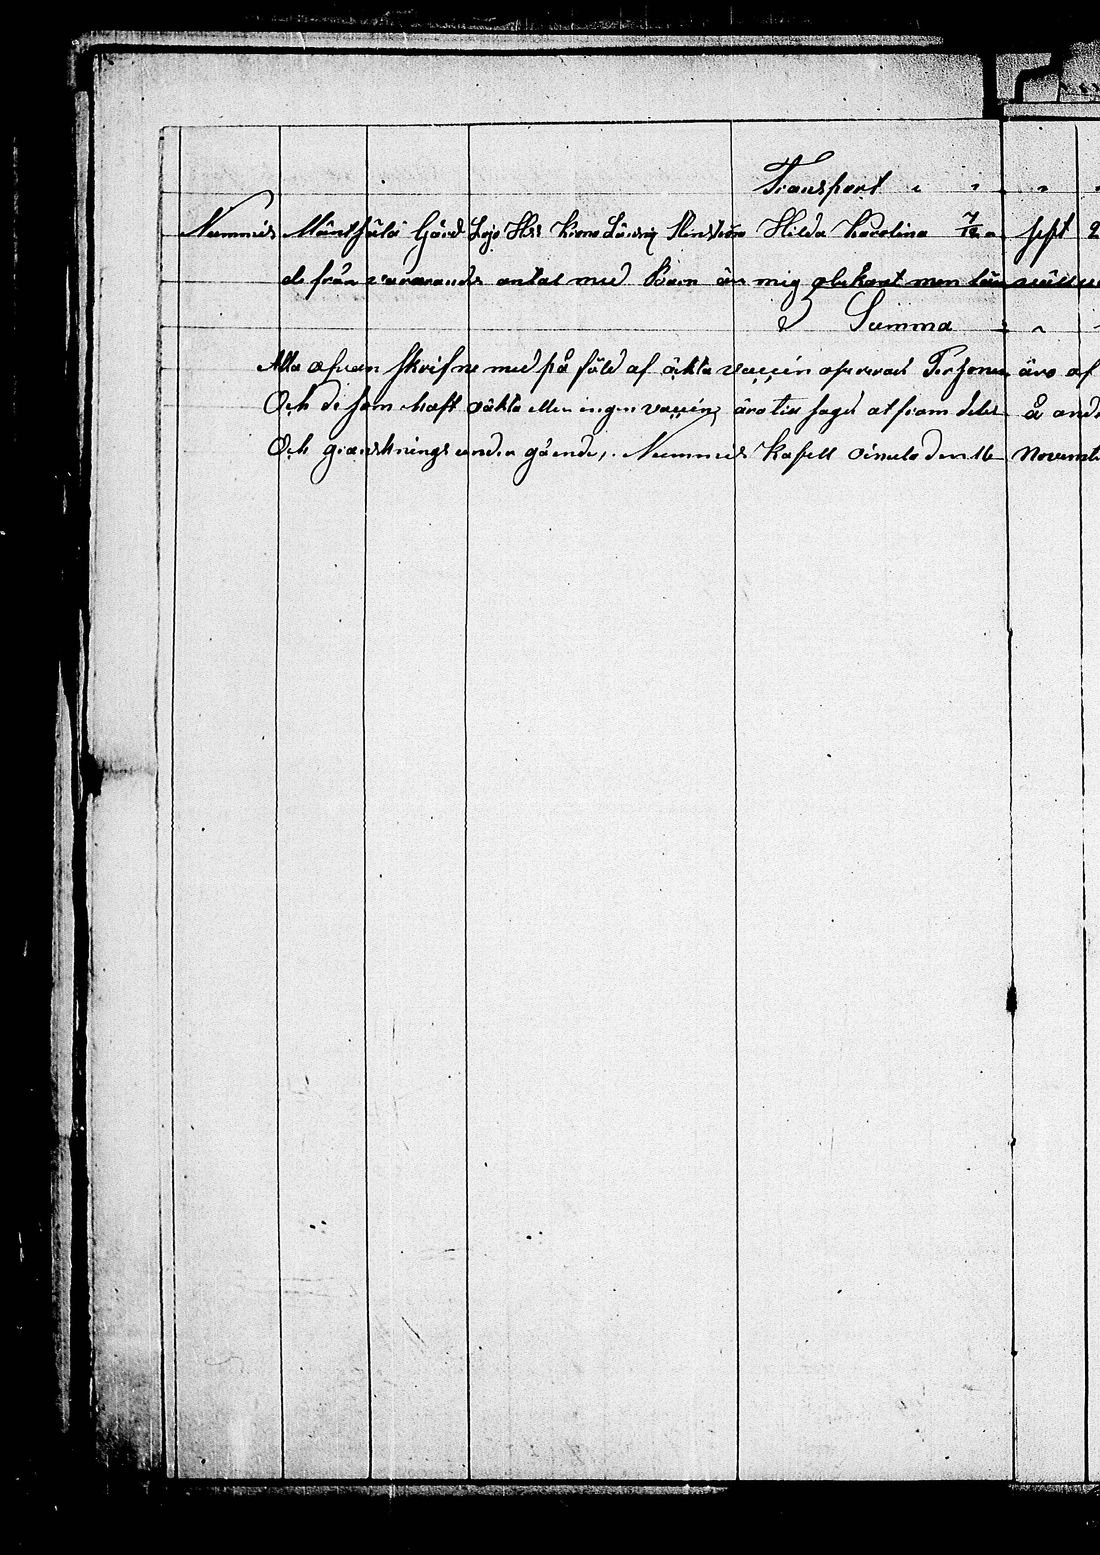 Transport " " " "
Nummis Mäntsälä Gård Lojo Hrs Krono Länsm Hilda Karolina 7/12 " sept 2
de från varavande antal med Barn är mig obekant men
Summa " "
Alla ofvan skrifne med på följd af äkta vaccin opererade Personer äro af
Och de som haft oäkta eller ingen vaccin, äro till sagde at fram deles å
Och gransknings under gående, Nummis Kapell den 16 Novemb